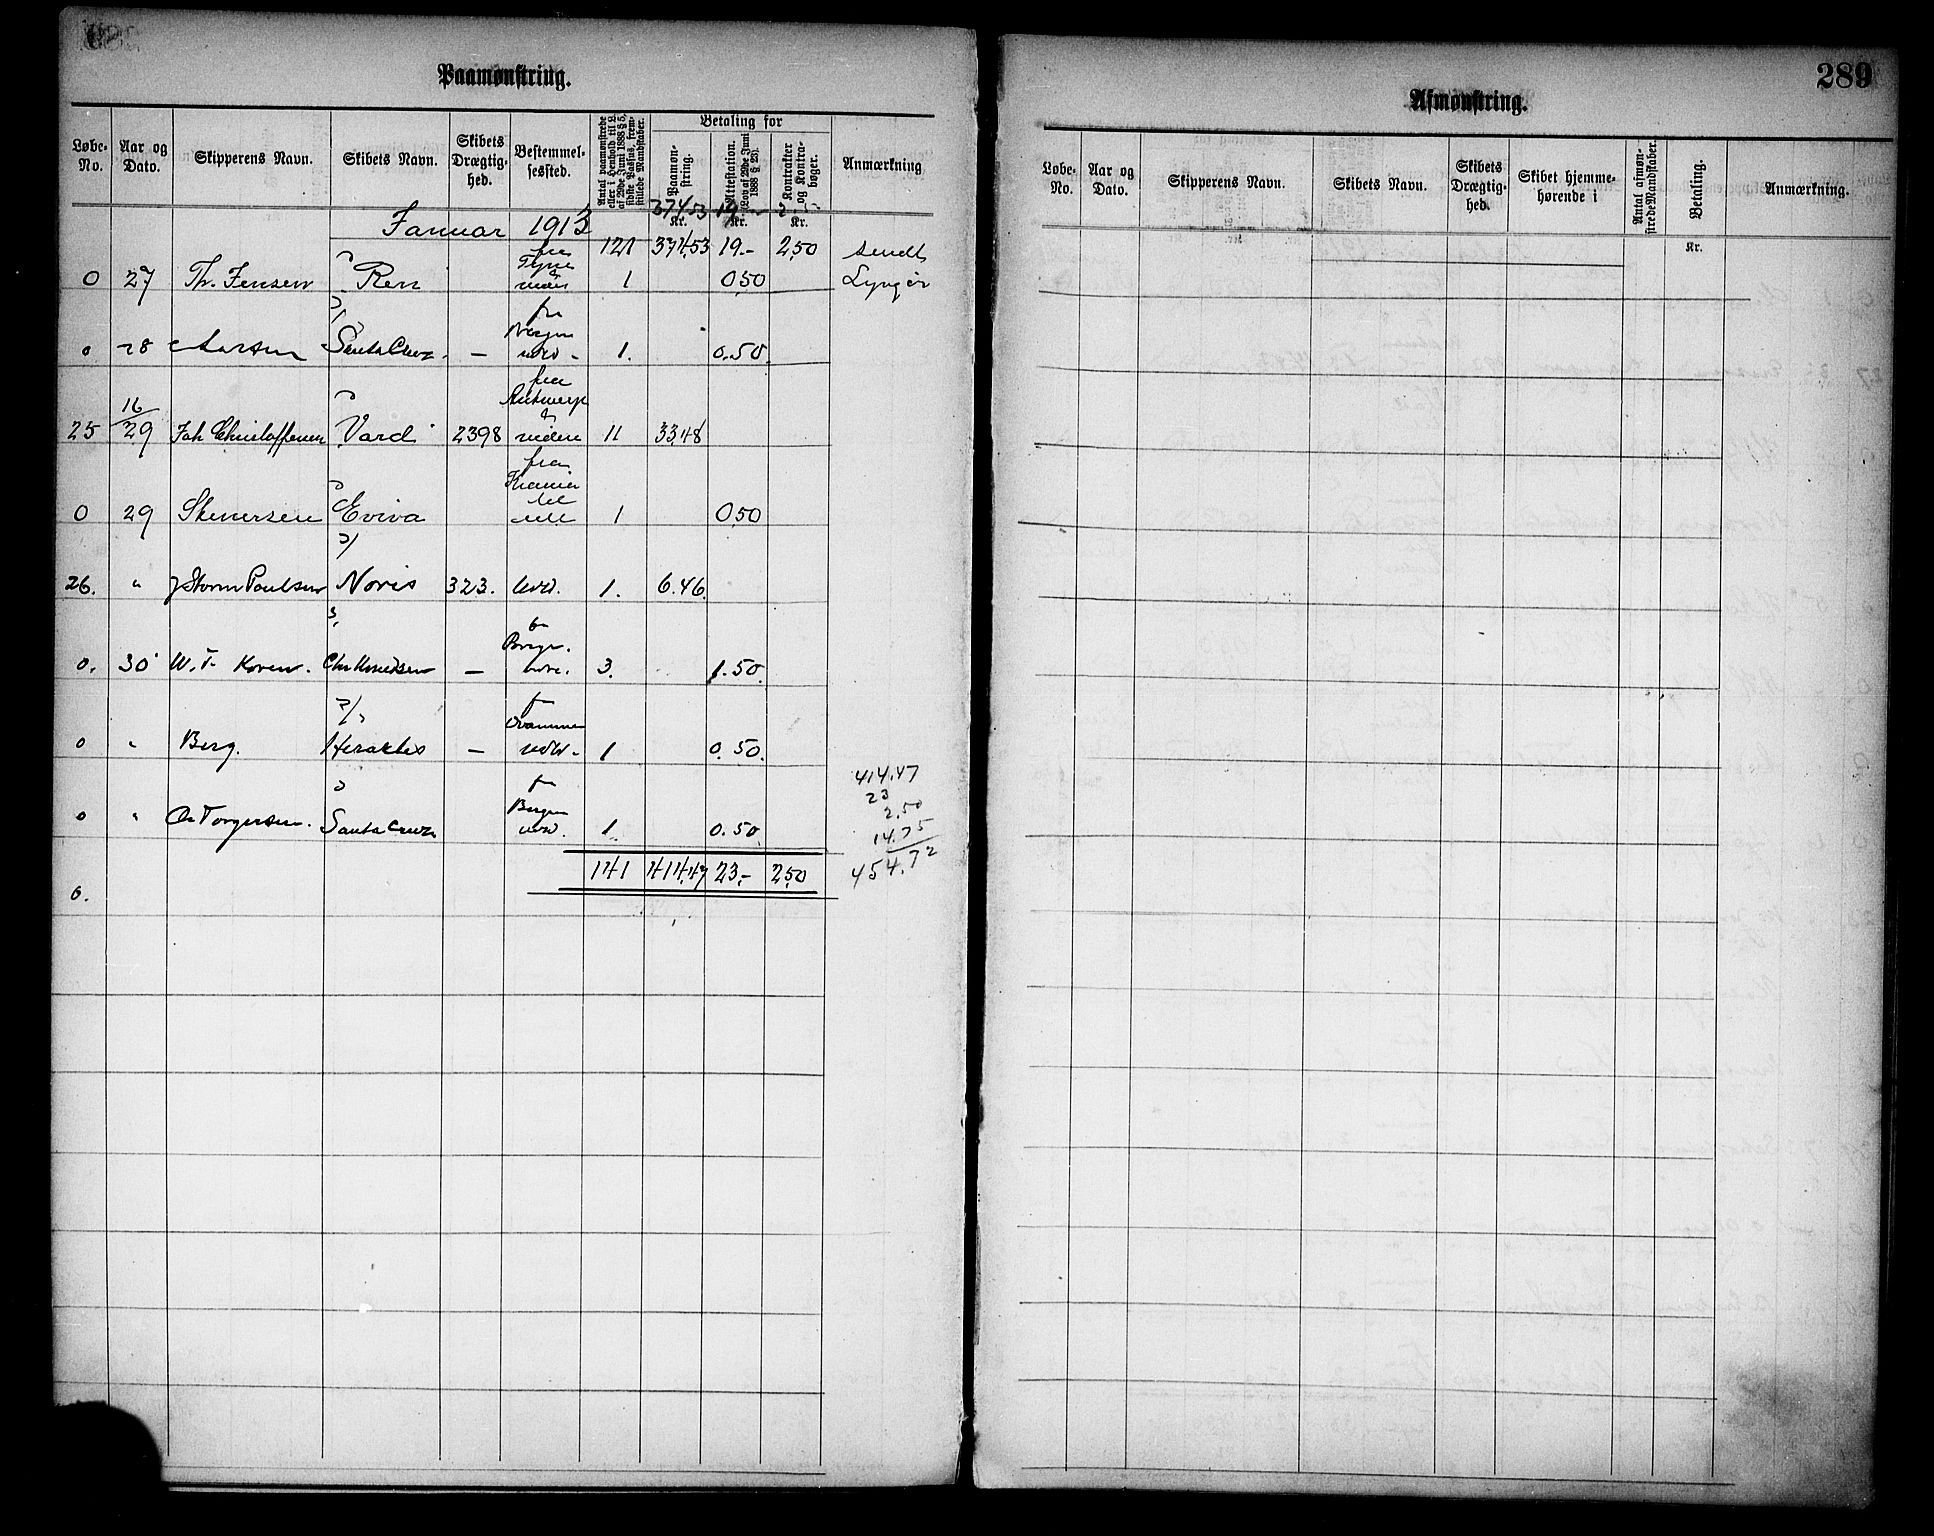 Paamønstring.
Løbe-No. Aar og Dato. Skipperens Navn. Skibets Navn. Skibets Drægtighed. Bestemmelsessted. Antal paamønstrede eller i Henhold til L. af 29de Juni 1888 § 5, sidste Passus, fremstillede Mandskaber. Betaling for Paamønstring. Kr. Attestation. (Lov af 29de Juni 1888 § 23). Kr. Kontrakter og Kontrabøger. Kr. Anmærkning
37453 19.-
Januar 1913 121 374,53 19.- 2,50 sendt
0 27 Th. Jensen Ren fra Tyne 1 0,50 Lyngør
0 28 Larsen Santa Cruz - fra Bergen udld. 1. 0.50.
25 16/29 Joh Christoffersen Vard 2398 fra Antwerp videre 11 33,48
0 29 Skeiersen Eviva fra til udl 1 0,50
26. " J Storm Paulsen Noris 323. udld. 1. 6.46.
0. 30 W. T. Koren. Chr Knudsen - 3. 1.50.
0 " Berg. Herakles - Drammen udld. 1 0.50.
0 " Torgersen. Santa Cruz Bergen udld. 1. 0.50
141 414,47 23,- 2,50
0.
414.47
23
2.50
14.75
454.72
289
Afmønstring.
Løbe-No. Aar og Dato. Skipperens Navn. Skibets Navn. Skibets Drægtighed. Skibet hjemmehørende i Antal afmønstrede Mandskaber. Betaling. Kr. Anmærkning.